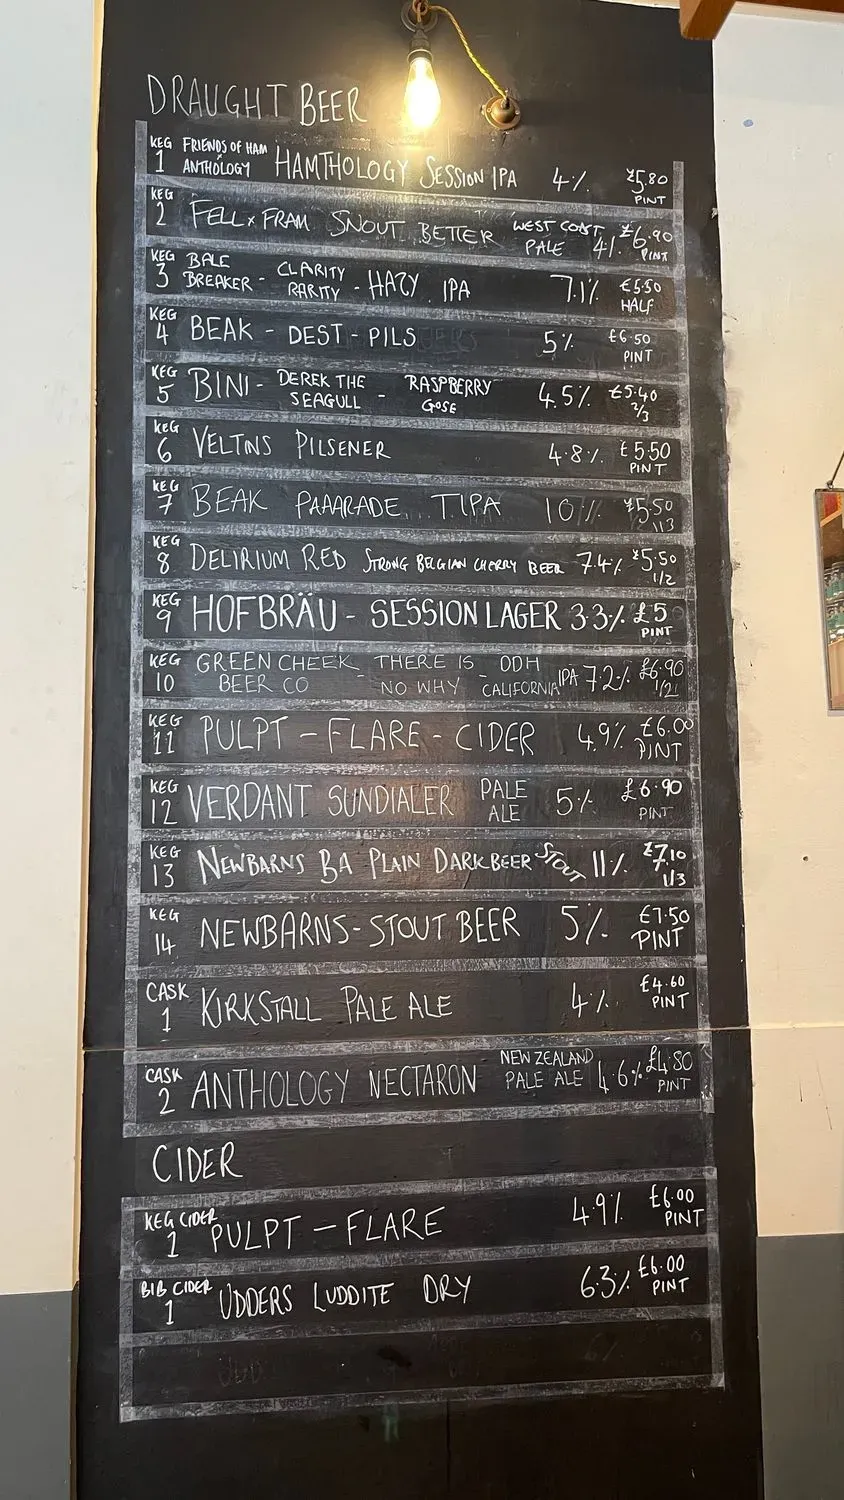 DRAUGHT BEER
KEG 1 FRIENDS OF HAM x ANTHOLOGY HAMTHOLOGY SESSION IPA 4% £5.80 PINT
KEG 2 FELL x FRAM SNOUT BETTER WEST COAST PALE 4% £6.90 PINT
KEG 3 BALE BREAKER - CLARITY RARITY - HAZY IPA 7.1% £5.50 HALF
KEG 4 BEAK - DEST - PILS 5% £6.50 PINT
KEG 5 BINI - DEREK THE SEAGULL - RASPBERRY GOSE 4.5% £5.40 2/3
KEG 6 VELTINS PILSENER 4.8% £5.50 PINT
KEG 7 BEAK PAAARADE TIPA 10% £5.50 1/3
KEG 8 DELIRIUM RED STRONG BELGIAN CHERRY BEER 7.4% £5.50 1/2
KEG 9 HOFBRÄU - SESSION LAGER 3.3% £5 PINT
KEG 10 GREEN CHEEK BEER CO - THERE IS NO WHY - DDH CALIFORNIA IPA 7.2% £6.90 1/2
KEG 11 PULPT - FLARE - CIDER 4.9% £6.00 PINT
KEG 12 VERDANT SUNDIALER PALE ALE 5% £6.90 PINT
KEG 13 NEWBARNS BA PLAIN DARK BEER STOUT 11% £7.10 1/3
KEG 14 NEWBARNS - STOUT BEER 5% £7.50 PINT
CASK 1 KIRKSTALL PALE ALE 4% £4.60 PINT
CASK 2 ANTHOLOGY NECTARON NEW ZEALAND PALE ALE 4.6% £4.80 PINT
CIDER
KEG CIDER 1 PULPT - FLARE 4.9% £6.00 PINT
BIB CIDER 1 UDDERS LUDDITE DRY 6.3% £6.00 PINT